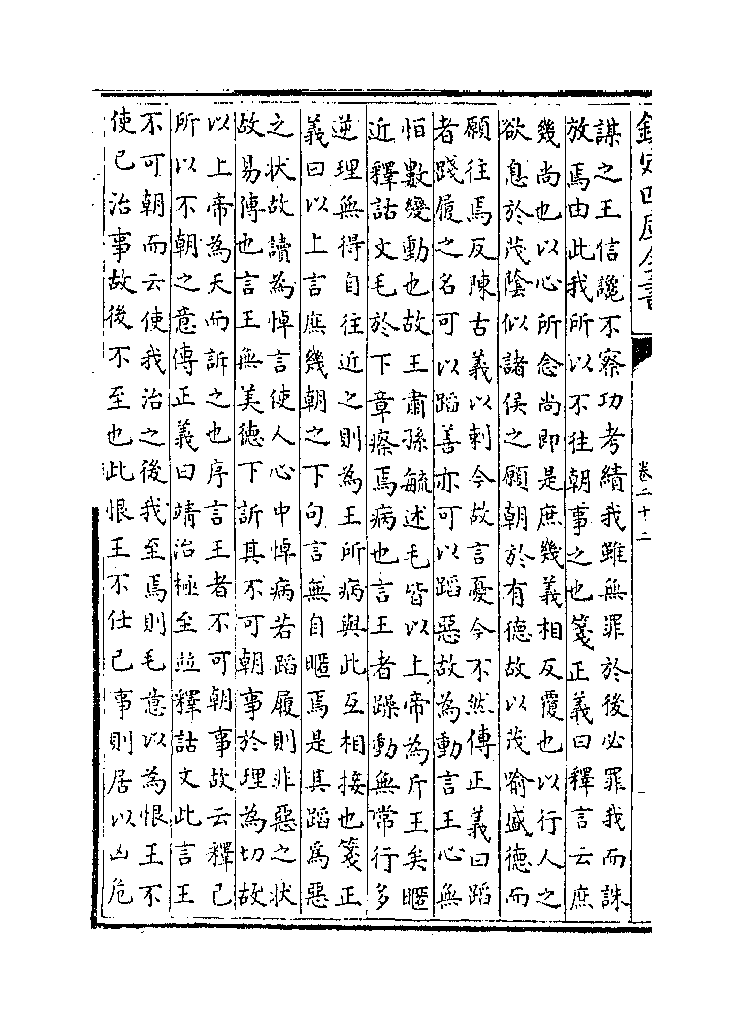 欽定四庫全書
卷二十二
謀之王信讒不察功考績我雖無罪於後必罪我而誅
放焉由此我所以不往朝事之也箋正義曰釋言云庶
幾尚也以心所念尚即是庶幾義相反覆也以行人之
欲息於茂陰似諸侯之願朝於有德故以茂喻盛德而
願往焉反陳古義以刺今故言憂今不然傳正義曰蹈
者踐履之名可以蹈善亦可以蹈惡故為動言王心無
恒數變動也故王肅孫毓述毛皆以上帝為斥王矣暱
近釋詁文毛於下章瘵焉病也言王者躁動無常行多
逆理無得自往近之則為王所病與此互相接也箋正
義曰以上言庶幾朝之下句言無自暱焉是其蹈為惡
之狀故讀為悼言使人心中悼病若蹈履則非惡之狀
故易傳也言王無美德下訴其不可朝事於理為切故
以上帝為天而訴之也序言王者不可朝事故云釋己
所以不朝之意傳正義曰靖治極至並釋詁文此言王
不可朝而云使我治之後我至焉則毛意以為恨王不
使己治事故後不至也此恨王不仕己事則居以凶危